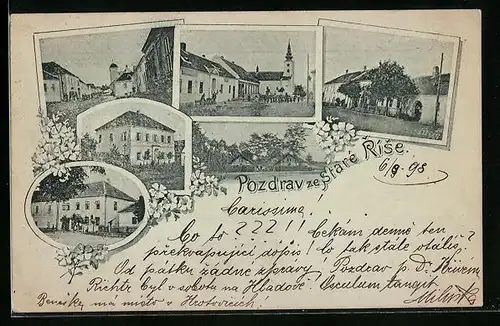 Pozdrav ze Staré Říše.
6/8. 98
Carissima!
Co to ???!! Čekám denně ten
překvapující dopis! Co tak stále otálíš?
Od pátku žádné zprávy. Pozdrav p. Dr
Richtr byl v sobotu na Hladově. Osculum tangit
Benešky má místo v Hrotovicích!